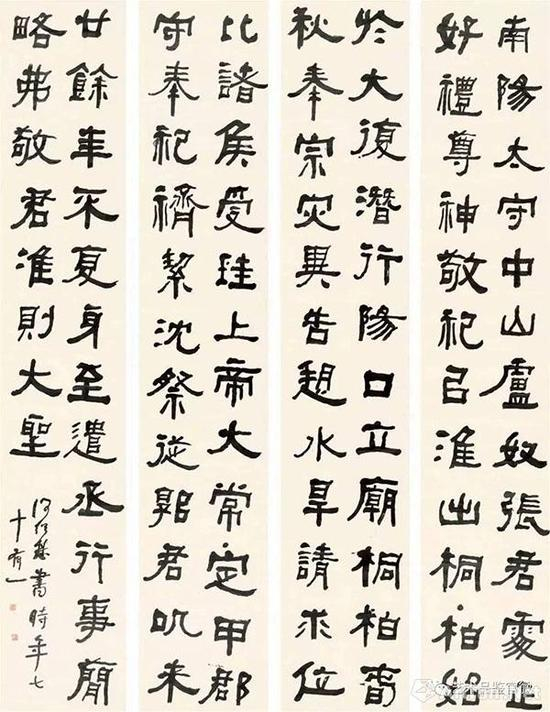 南陽太守中山盧奴張君處正
好禮尊神敬祀㠯淮出桐柏始
於大復潛行陽口立廟桐柏春
秋奉宗災異告愬水旱請求位
比諸侯受珪上帝大常定甲郡
守奉祀絜沈祭從郭君以來
廿餘年不复身至遣丞行事簡
略弗敬君准則大聖
書時年七
十有一